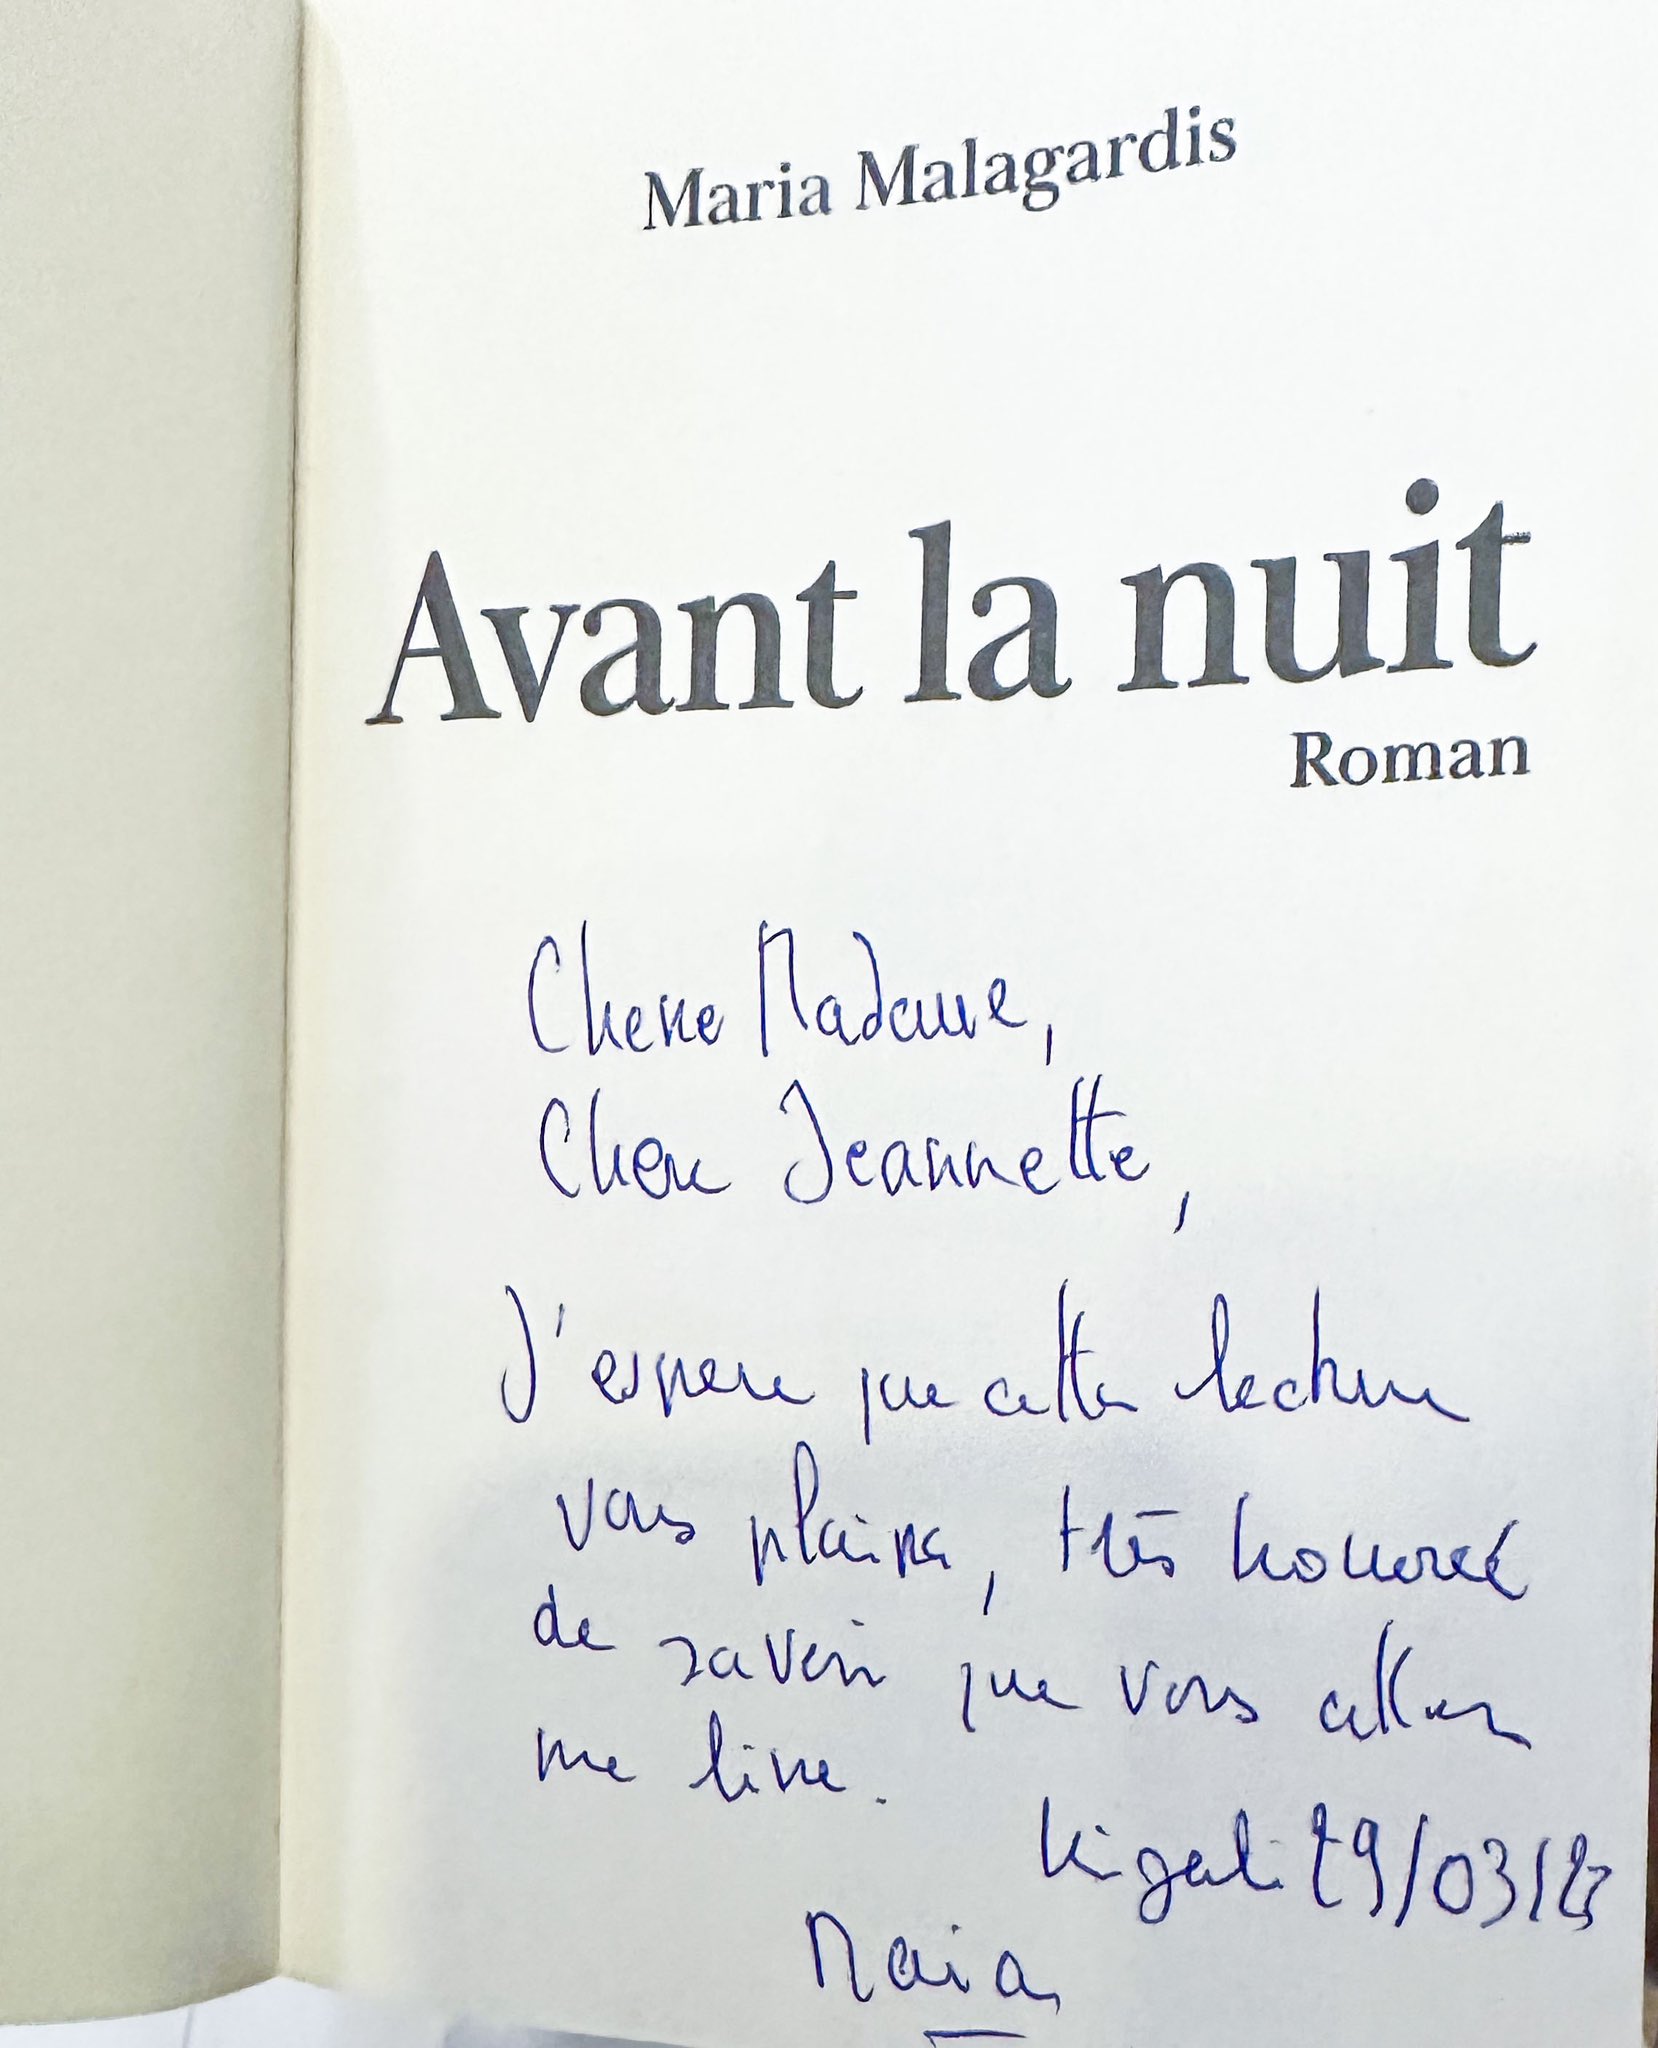 Maria Malagardis
Avant la nuit
Roman
Chere Madame,
Chere Jeannette,
J'espere que cette lecture
vous plaira, très honorée
de savoir que vous allez
me lire.
Kigali 29/03/23
Maria